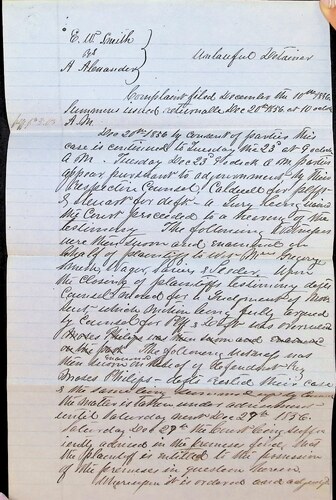 E. W. Smith
vs
A Alexander
Unlawful Detainer
Complaint filed December the 10th 1856
Summons issued returnable Dec 20th 1856 at 10 oclock
A.M.
Dec 20th 1856 by consent of parties this
case is continued to Tuesday the 23d at 9 oclock
A M. Tuesday Dec 23d 9 oclock A M parties
appear pursuant to adjournment by their
respective Counsel, Caldwell for plff
& Stewart for deft - a Jury being waived
the Court proceeded to a hearing of the
testimony The following witnesses
were then sworn and examined on
behalf of plaintiff to wit Gregory
Smith Upon
the closing of plaintiffs testimony defts
Counsel moved for a Judgment of Non
Suit which motion being fully argued
by Counsel for Plff & Deft was overruled
Moses Philips was then sworn and examined
The following witness was
then sworn on behalf of defendant
Moses Philips - defts rested their case
& the same being
the matter is taken under advisement
until Saturday next Dec 27th 1856.
Saturday Dec 27th the Court being suffic-
iently advised in the premises finds that
the plaintiff is entitled to the possession
of the premises in question
Whereupon it is ordered and adjudged